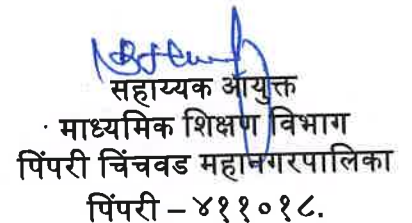 सहाय्यक आयुक्त
माध्यमिक शिक्षण विभाग
पिंपरी चिंचवड महानगरपालिका
पिंपरी – ४११०१८.